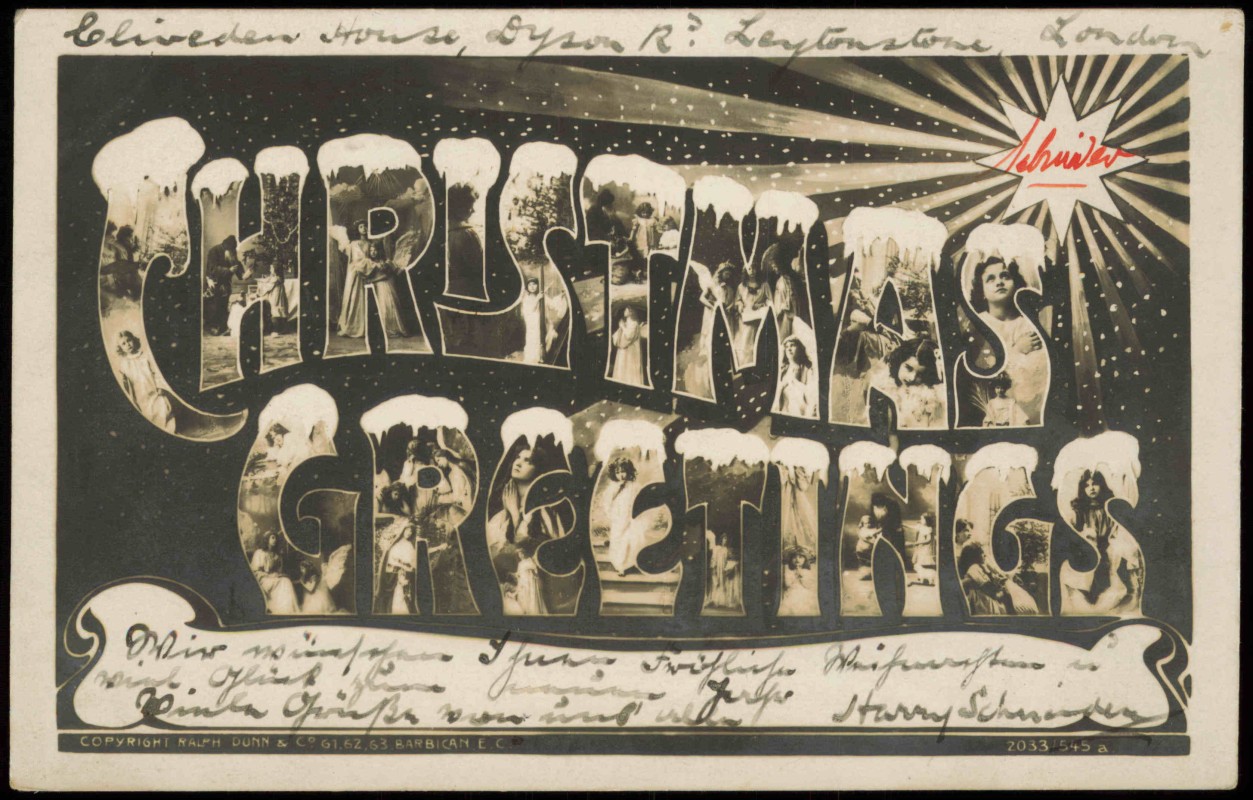 Cliveden House, Dyson Rd Leytonstone, London
Schnider
CHRISTMAS
GREETINGS
Wir wünschen Ihnen Fröhliche Weihnachten u
viel Glück zum neuen Jahr
Viele Grüße von uns allen Harry Schnieder
COPYRIGHT RALPH DUNN & Co 61, 62, 63 BARBICAN E.C.
2033/545 a